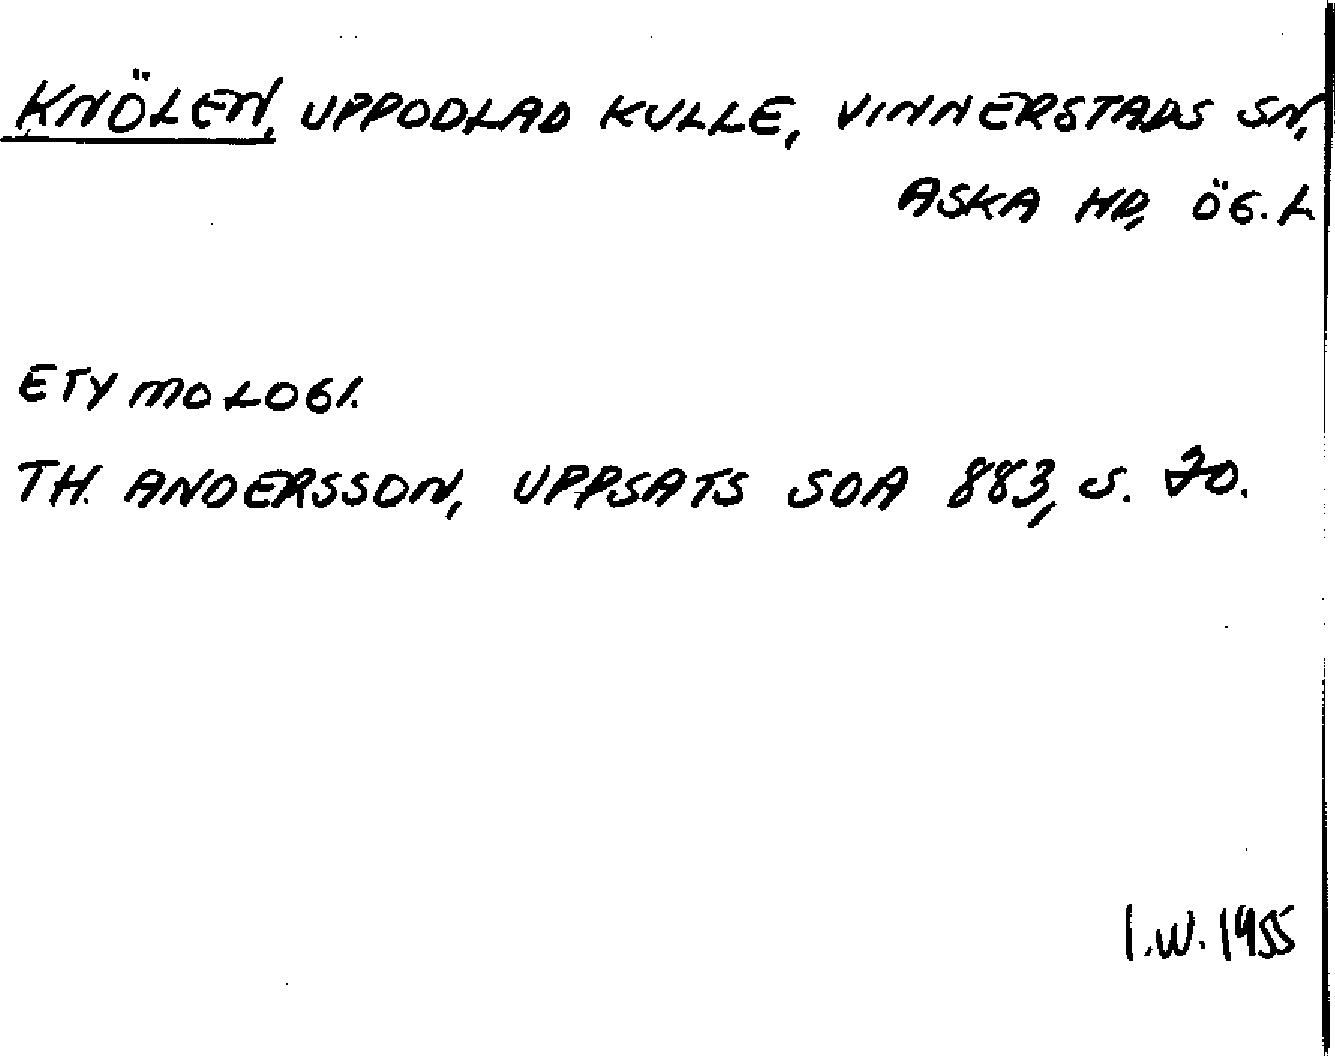 KNÖLEN, UPPODLAD KULLE, VINNERSTADS SN,
ASKA HD, ÖG. L.
ETYMOLOGI.
TH. ANDERSSON, UPPSATS SOA 883, S. 70.
I.W. 1955